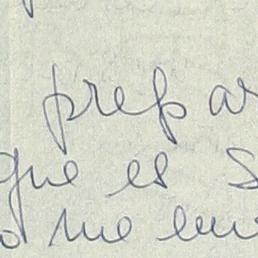 prepar
que es s
o me envi